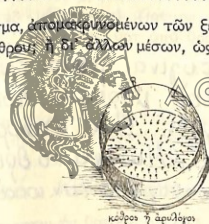 σμα, ἀπομακρυνομένων τῶν ξ
θρου; ἢ δι' ἄλλων μέσων, ὡς
κόθρος ἢ ἀρυλόγος